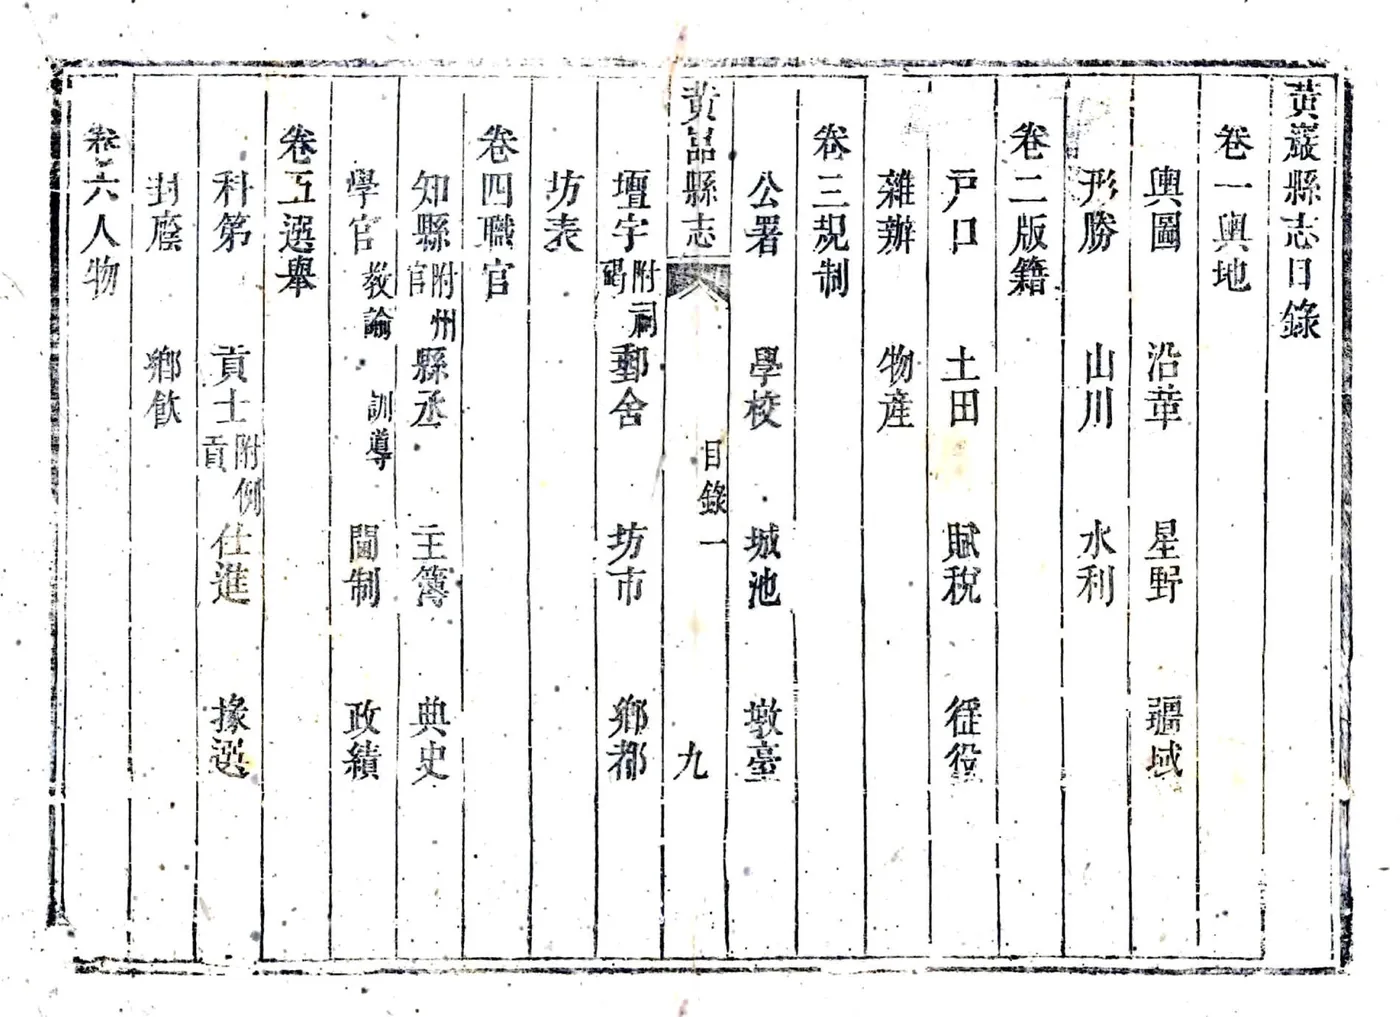 黃巖縣志目錄
卷一輿地
輿圖 沿革 星野 疆域
形勝 山川 水利
卷二版籍
戶口 土田 賦稅 徭役
雜辦 物產
卷三規制
公署 學校 城池 墩臺
黃嵓縣志 目錄一 九
壇宇附祠碣 郵舍 坊市 鄉都
坊表
卷四職官
知縣附州官 縣丞 主簿 典史
學官教諭 訓導 閫制 政績
卷五選舉
科第 貢士附例貢 仕進 掾選
封廕 鄉飲
卷六人物